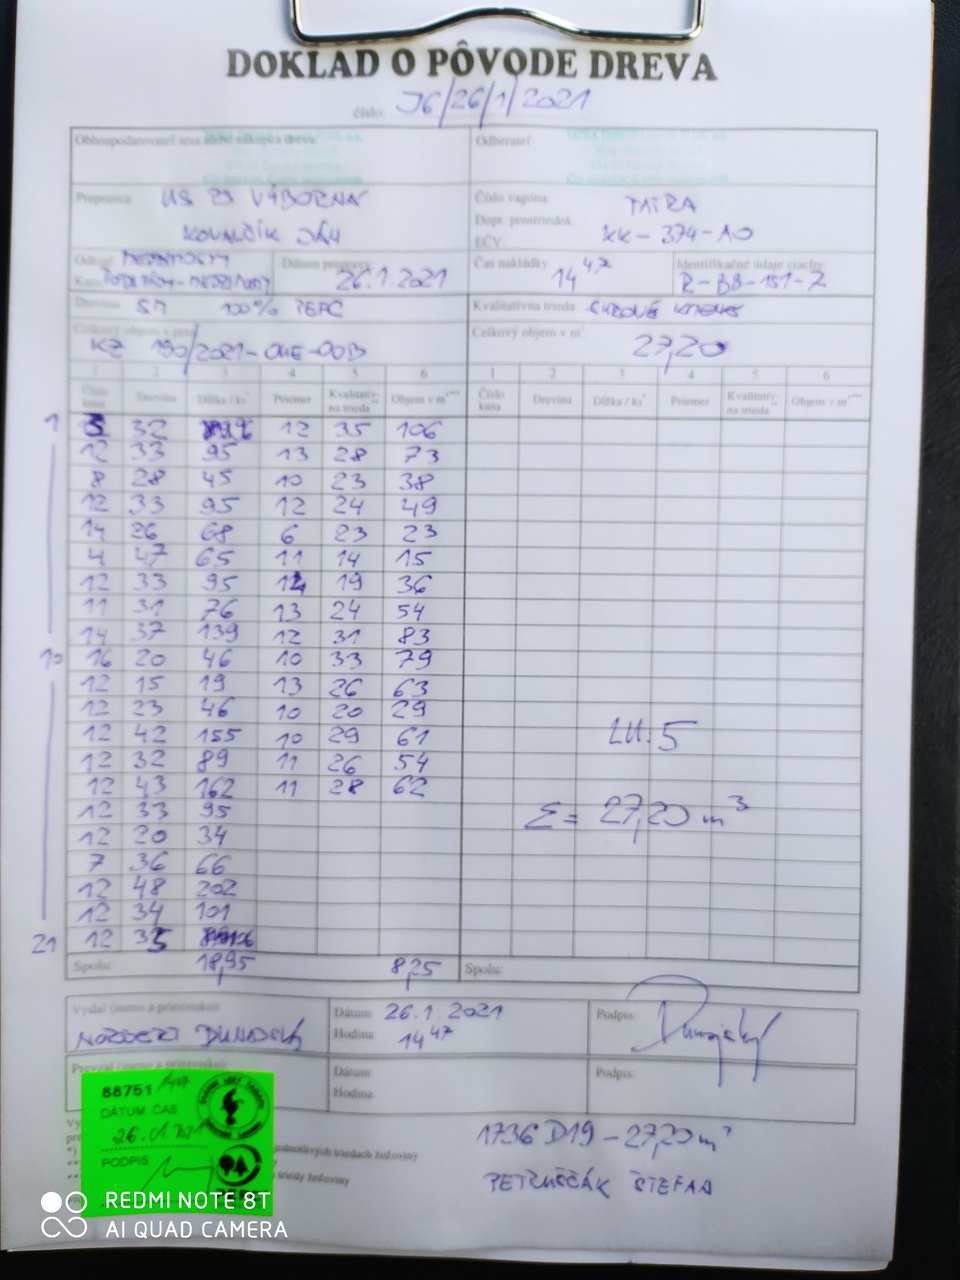 DOKLAD O PÔVODE DREVA
číslo: J6/26/1/2021
Obhospodarovateľ lesa alebo nákupca dreva:
Odberateľ:
Prepravca: US ZS VÝBORNÁ
KOVALČÍK JÁN
Číslo vagóna: TATRA
Dopr. prostriedok
EČV: KK-374-AO
Dátum prepravy: 26.1.2021
Čas nakládky: 14 47
Identifikačné údaje ciachy: R-BB-151-Z
Drevina SM 100% PEFC
Kvalitatívna trieda:
Celkový objem v
KZ 190/2021-OME-OOB
Celkový objem v m³ 27,20
1 2 3 4 5 6 1 2 3 4 5 6
Číslo kusa Drevina Dĺžka / ks* Priemer Kvalitatív- na trieda** Objem v m³*** Číslo kusa Drevina Dĺžka / ks* Priemer Kvalitatív- na trieda** Objem v m³***
1 32 12 35 106
12 33 95 13 28 73
8 28 45 10 23 38
12 33 95 12 24 49
14 26 68 6 23 23
4 47 65 11 14 15
12 33 95 19 36
11 31 76 13 24 54
14 37 139 12 31 83
10 16 20 46 10 33 79
12 15 19 13 26 63
12 23 46 10 20 29
12 42 155 10 29 61
LU.5
12 32 89 11 26 54
12 43 162 11 28 62
12 33 95
Σ = 27,20 m³
12 20 34
7 36 66
12 48 202
12 34 101
21 12 35
Spolu: 18,95 8,25 Spolu:
Vydal (meno a priezvisko)
NORBERT
Dátum: 26.1.2021
Hodina: 14 47
Podpis:
Prevzal (meno a priezvisko)
Dátum:
Hodina:
Podpis:
88751
DÁTUM, ČAS
26.01.2021
PODPIS
jednotlivých triedach
triedy
1736 D19 - 27,20 m³
PETRUŠČÁK ŠTEFAN
REDMI NOTE 8T
AI QUAD CAMERA